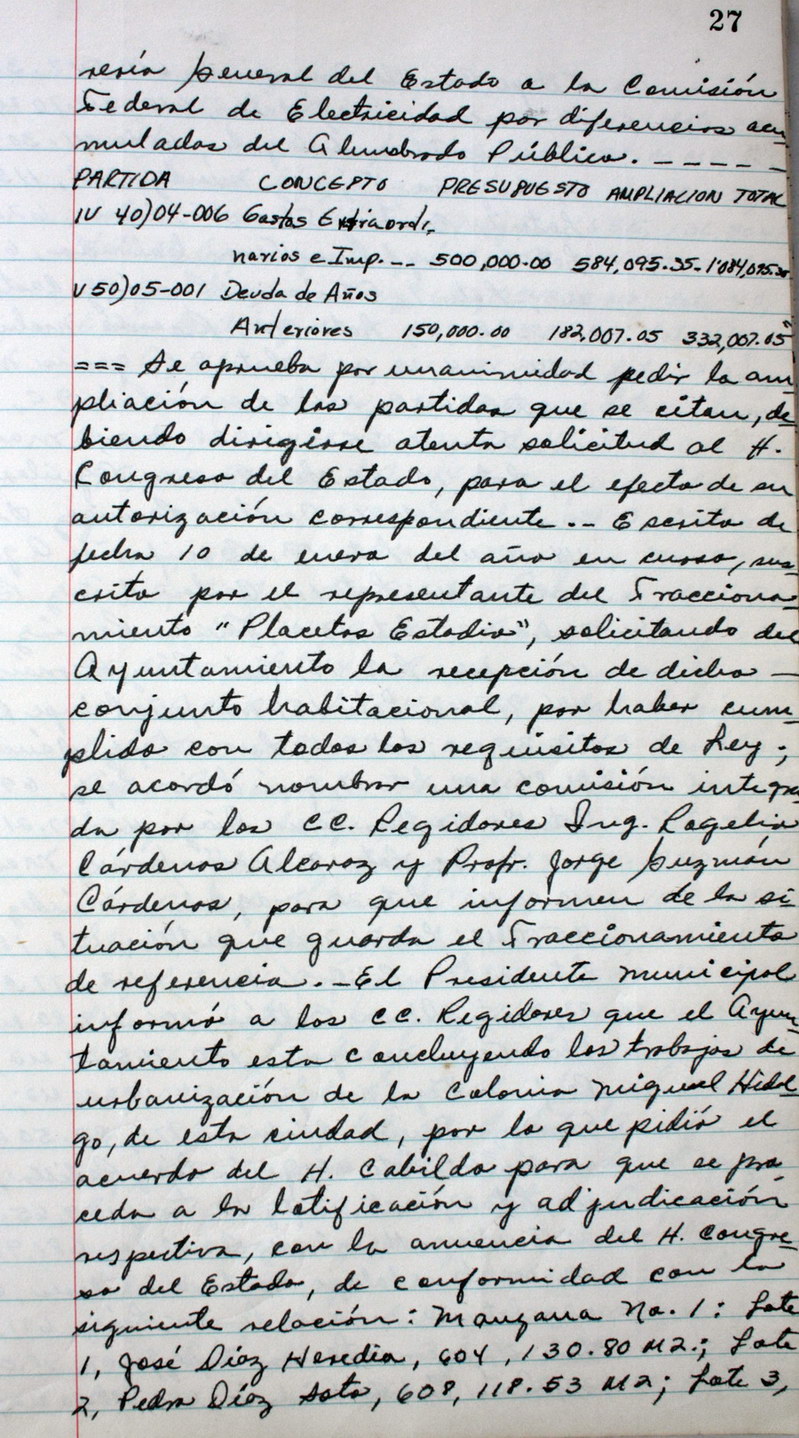 27
rería General del Estado a la Comisión
Federal de Electricidad por diferencias acu
muladas del Alumbrado Público. _ _ _ _ _
PARTIDA CONCEPTO PRESUPUESTO AMPLIACION TOTAL
IV 40)04-006 Gastos Extraordi,
narios e Imp. -- 500,000.00 584,095.35-1'084,095.35
V 50)05-001 Deuda de Años
Anteriores 150,000.00 182,007.05 332,007.05"
=== Se aprueba por unanimidad pedir la am
pliación de las partidas que se citan, de
biendo dirigirse atenta solicitud al H.
Congreso del Estado, para el efecto de su
autorización correspondiente.-- Escrito de
fecha 10 de enero del año en curso, sus
crito por el representante del Fracciona
miento "Placetas Estadio", solicitando del
Ayuntamiento la recepción de dicho -
conjunto habitacional, por haber cum
plido con todos los requisitos de Ley;
se acordó nombrar una comisión integra
da por los CC. Regidores Ing. Rogelio
Cárdenas Alcaraz y Profr. Jorge Guzmán
Cárdenas, para que informen de la si
tuación que guarda el Fraccionamiento
de referencia.-El Presidente Municipal
informó a los CC. Regidores que el Ayun
tamiento esta concluyendo los trabajos de
urbanización de la Colonia Miguel Hidal
go, de esta ciudad, por lo que pidió el
acuerdo del H. Cabildo para que se pro
ceda a la lotificación y adjudicación
respectiva, con la anuencia del H. Congre
so del Estado, de conformidad con la
siguiente relación: Manzana No. 1: Lote
1, José Díaz Heredia, 604, 130.80 M2.; Lote
2, Pedro Díaz Soto, 608, 118.53 M2; Lote 3,